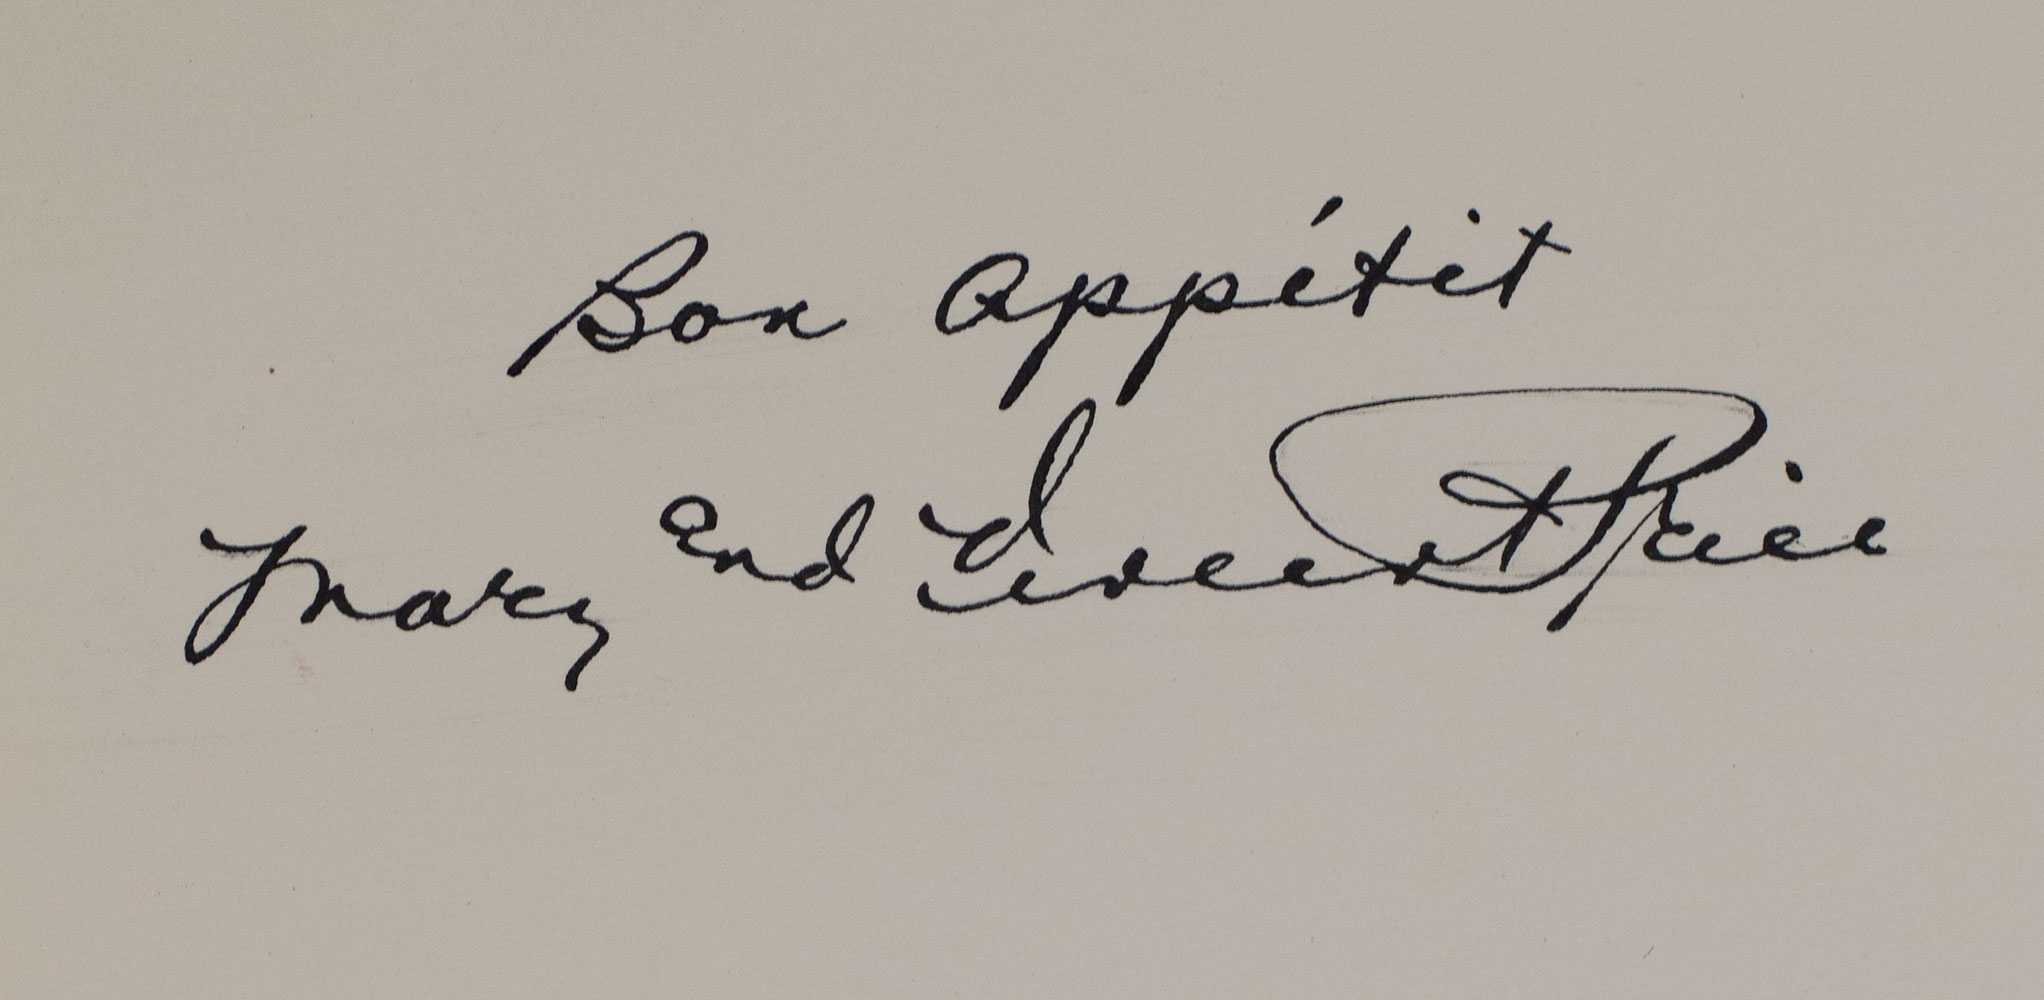 Bon appétit
Mary and Vincent Price